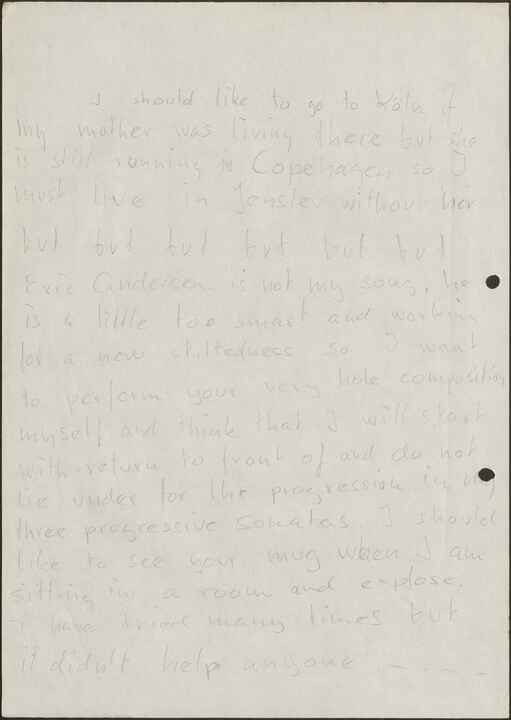 I should like to go to Köln if
my mother was living there but she
is still running in Copenhagen so I
must live in without her
but but but but but but
Eric Andersen is not my song, he
is a little too smart and working
for a new stiltedness so I want
to perform your very hole composition
myself and think that I will start
with return to front of and do not
lie under for the progression in my
three progressive sonatas. I should
like to see your mug when I am
sitting in a room and explose.
I have tried many times but
it didn't help anyone - - - -